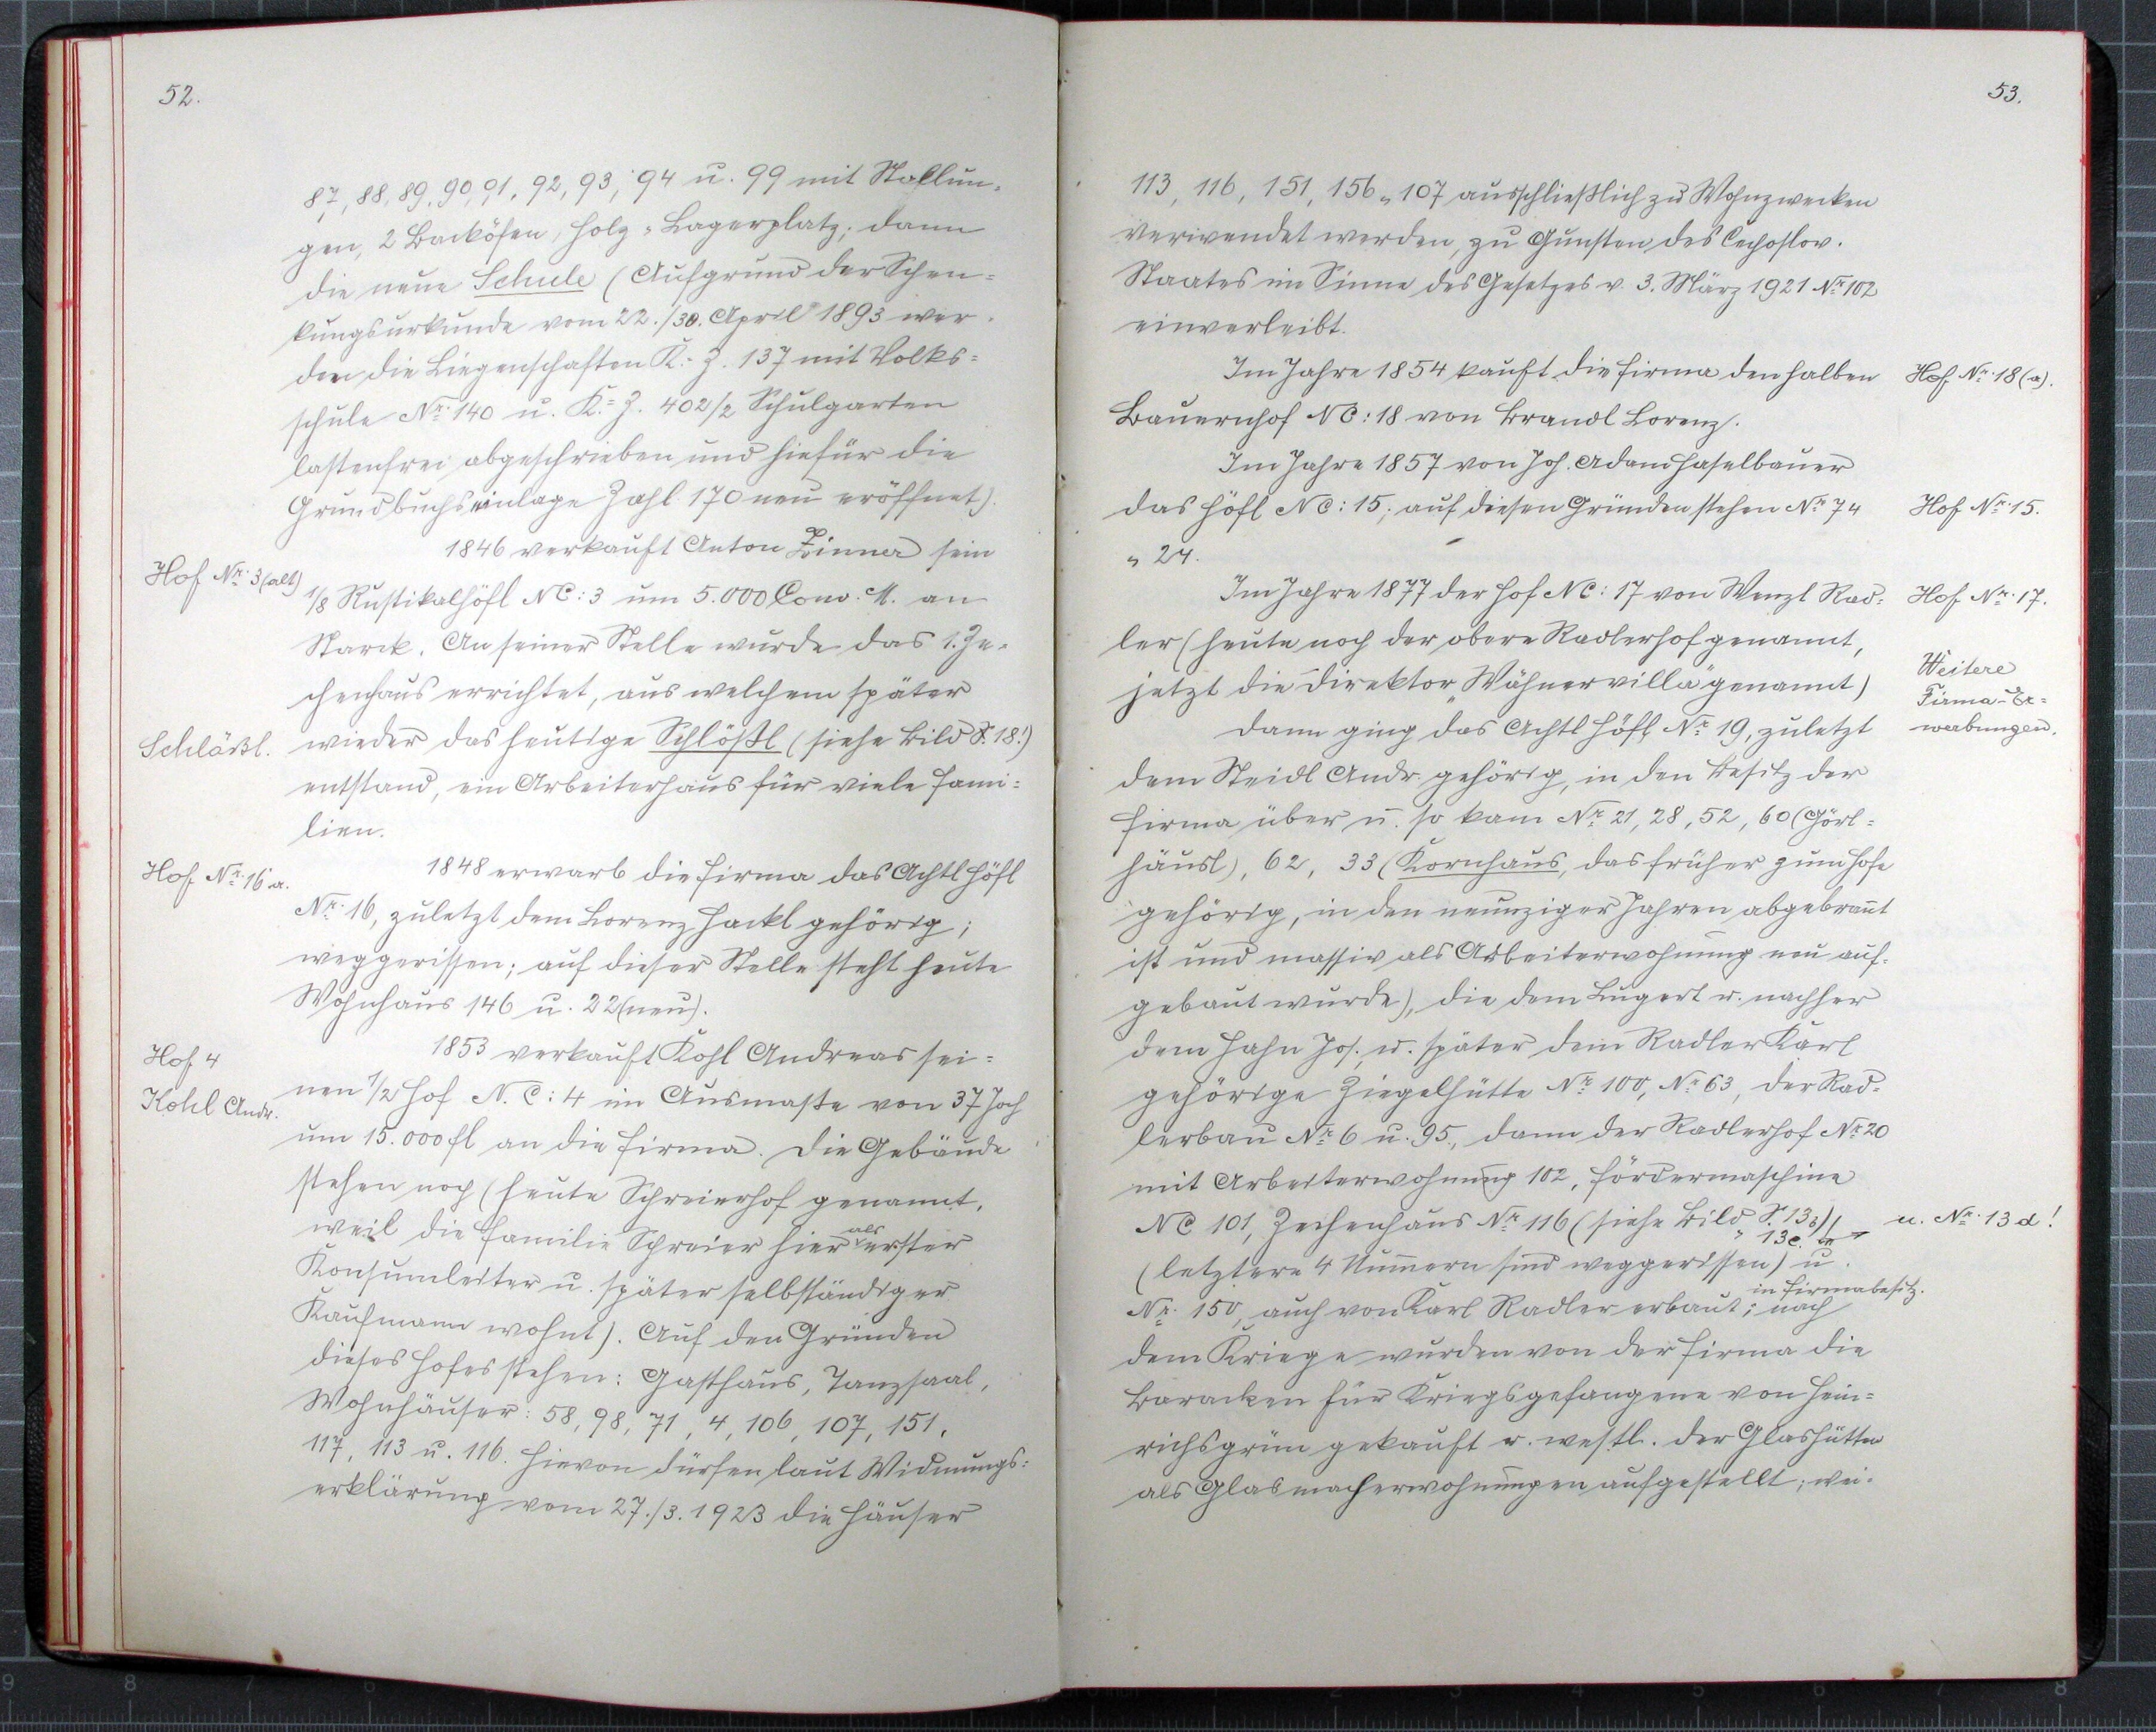 52.
87, 88, 89, 90, 91, 92, 93, 94 u. 99 mit Stallun-
gen, 2 Backöfen, Holz-Lagerplatz; dann
die neue Schule (Aufgrund der Schen-
kungsurkunde vom 22./30. April 1893 wer-
den die Liegenschaften K.-Z. 137 mit Volks-
schule Nr. 140 u. K.-Z. 402/2 Schulgarten
lastenfrei abgeschrieben und hiefür die
Grundbuchseinlage Zahl 170 neu eröffnet).
1846 verkauft Anton Zinner sein
Hof Nr. 3 (alt)
1/8 Rustikalhöfl NC: 3 um 5.000 Conv. M. an
Starck. An seiner Stelle wurde das 1. Ze-
chenhaus errichtet, aus welchem später
Schlößl.
wieder das heutige Schlößl (siehe Bild S. 18!)
entstand, ein Arbeiterhaus für viele Fami-
lien.
1848 erwarb die Firma das Achtlhöfl
Hof Nr. 16 a.
Nr. 16, zuletzt dem Lorenz Hackl gehörig;
weggerissen; auf dieser Stelle steht heute
Wohnhaus 146 u. 22 (neu).
1853 verkauft Kohl Andreas sei-
Hof 4
Kohl Andr.
nen 1/2 Hof N. C: 4 im Ausmaße von 37 Joch
um 15.000 fl an die Firma. Die Gebäude
stehen noch (heute Schreierhof genannt,
weil die Familie Schreier hier als erster
Konsumleiter u. später selbständiger
Kaufmann wohnt). Auf den Gründen
dieses Hofes stehen: Gasthaus, Tanzsaal,
Wohnhäuser: 58, 98, 71, 4, 106, 107, 151,
117, 113 u. 116. Hievon dürfen laut Widmungs-
erklärung vom 27./3. 1923 die Häuser
53.
113, 116, 151, 156 " 107 ausschließlich zu Wohnzwecken
verwendet werden, zu Gunsten des Cechoslov.
Staates im Sinne des Gesetzes v. 3. März 1921 Nr. 102
einverleibt.
Im Jahre 1854 kauft die Firma den halben
Hof Nr. 18 (a).
Bauernhof NC: 18 von Brandl Lorenz.
Im Jahre 1857 von Joh. Adam Haselbauer
das Höfl NC: 15; auf diesen Gründen stehen Nr. 74
Hof Nr. 15.
" 24.
Im Jahre 1877 der Hof NC: 17 von Wenzl Rad-
Hof Nr. 17.
ler (heute noch der obere Radlerhof genannt,
jetzt die Direktor „Wähnervilla" genannt)
Weitere
Firma-Er-
werbungen.
Dann ging das Achtlhöfl Nr. 19, zuletzt
dem Steidl Andr. gehörig, in den Besitz der
Firma über u. so kam Nr. 21, 28, 52, 60 (Görl-
häusl), 62, 33 (Kornhaus, das früher zum Hofe
gehörig, in den neunziger Jahren abgebrannt
ist und massiv als Arbeiterwohnung neu auf-
gebaut wurde), die dem Lugert u. nachher
dem Hahn Jos. u. später dem Radler Karl
gehörige Ziegelhütte Nr. 100, Nr. 63, der Rad-
lerbau Nr. 6 u. 95, dann der Radlerhof Nr. 20
mit Arbeiterwohnung 102, Fördermaschine
NC 101, Zechenhaus Nr. 116 (siehe Bild S. 13b)
" 13c.
u. Nr. 13 d!
(letztere 4 Nummern sind weggerissen) u.
Nr. 150, auch von Karl Radler erbaut; in Firmabesitz. nach
dem Kriege wurden von der Firma die
Baracken für Kriegsgefangene von Hein-
richsgrün gekauft u. westl. der Glashütte
als Glasmacherwohnungen aufgestellt; wei-